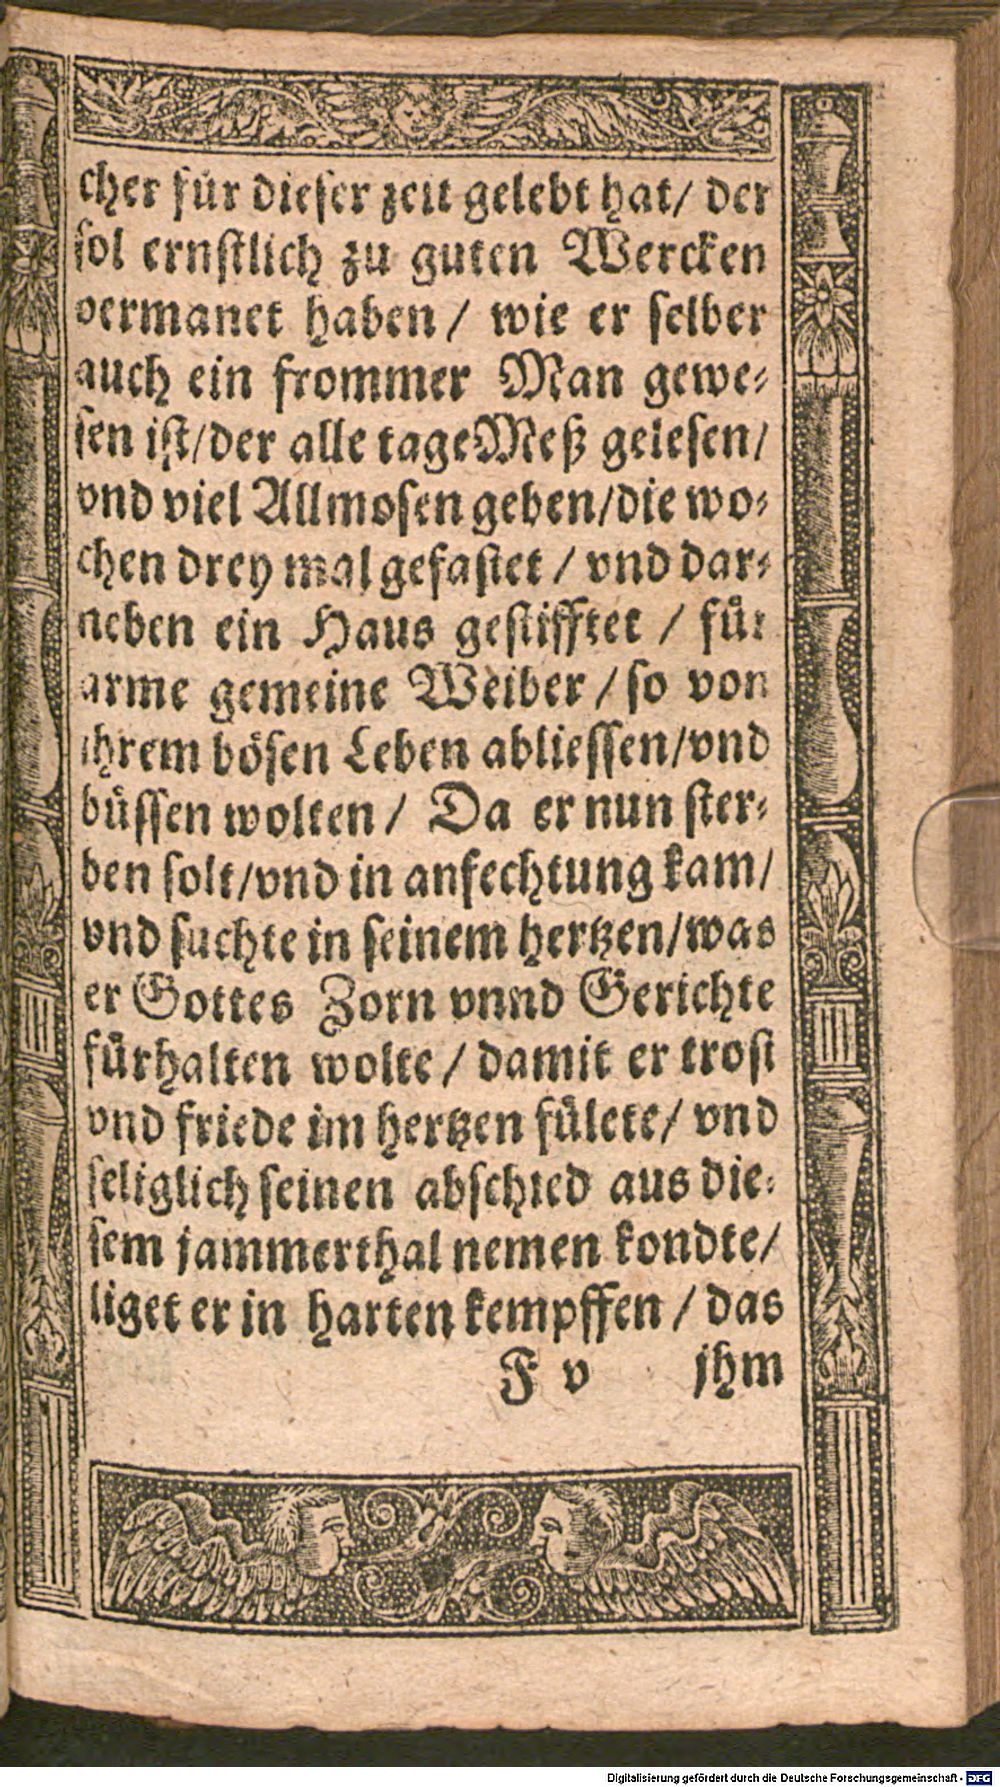 cher für dieser zeit gelebt hat/ der
sol ernstlich zu guten Wercken
vermanet haben / wie er selber
auch ein frommer Man gewe⸗
sen ist/der alle tage Meß gelesen/
vnd viel Allmosen geben/die wo⸗
chen drey mal gefastet / vnd dar⸗
neben ein Haus gestifftet / für
arme gemeine Weiber / so von
ihrem bösen Leben abliessen/vnd
büssen wolten / Da er nun ster⸗
ben solt/vnd in anfechtung kam/
vnd suchte in seinem hertzen/was
er Gottes Zorn vnnd Gerichte
fürhalten wolte / damit er trost
vnd friede im hertzen fülete/ vnd
seliglich seinen abschied aus die⸗
sem jammerthal nemen kondte/
liget er in harten kempffen / das
F v jhm
Digitalisierung gefördert durch die Deutsche Forschungsgemeinschaft - DFG